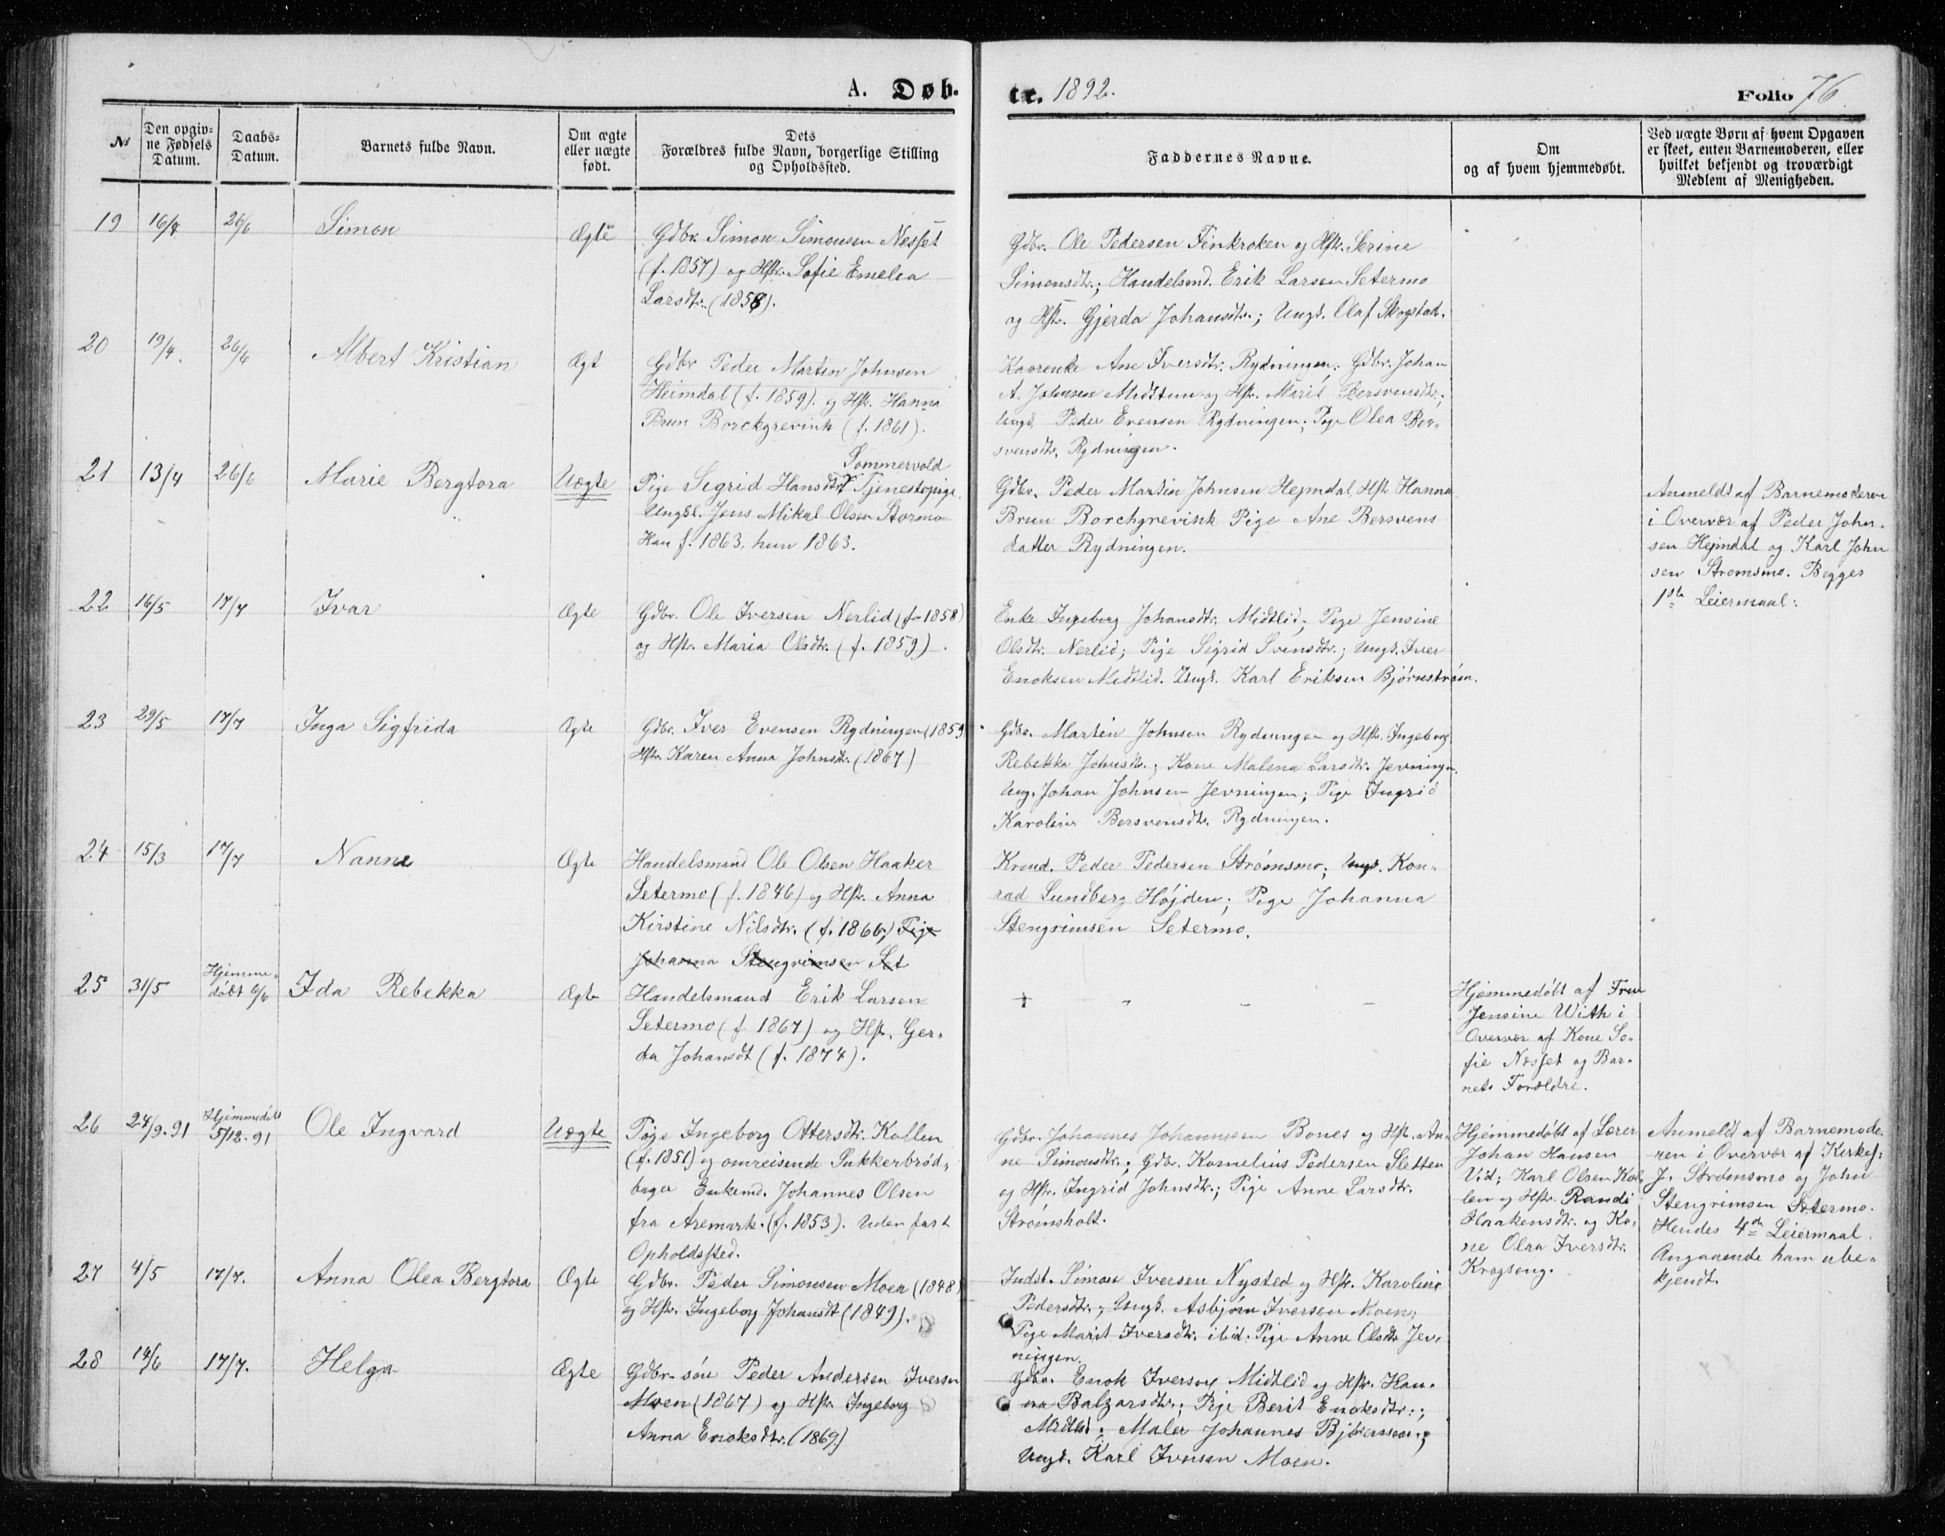 A. Døb-
te. 1892.
Folio 76
№
Den opgiv-
ne Fødsels
Datum.
Daabs-
Datum.
Barnets fulde Navn.
Om ægte
eller uægte
født.
Dets
Forældres fulde Navn, borgerlige Stilling
og Opholdssted.
Faddernes Navne.
Om
og af hvem hjemmedøbt.
Ved uægte Børn af hvem Opgaven
er skeet, enten Barnemoderen, eller
hvilket bekjendt og troværdigt
Medlem af Menigheden.
19 16/4 26/6 Simon Ægte
Gdbr. Simon Simonsen Nesset
(f. 1857) og Hstr. Sofie Emelea
Larsdtr. (1858).
Gdbr. Ole Pedersen Finkroken og Hstr. Serine
Simonsdtr.; Handelsmd. Erik Larsen Setermo
og Hstr. Gjerda Johansdtr.; Ungk. Olaf Skogstad.
20 19/4. 26/6 Albert Kristian Ægt
Gdbr Peder Martin Johnsen
Heimdal (f. 1859). og Hstr. Hanna
Brun Borckgrevink (f. 1861).
Kaarenke Ane Iversdtr. Rydningen; Gdbr. Johan
A. Johnsen Midttun og Hstr. Marit Bersvensdtr.;
Ungk. Peder Evensen Rydningen; Pige Olea Ber-
svensdtr. Rydningen.
21 13/4 26/6 Marie Bergtora Uægte
Sommervold
Pige Sigrid Hansdtr Tjenestepige
Ungk. Jens Mikal Olsen Stormo
Han f. 1863. hun 1863.
Gdbr. Peder Martin Johnsen Hejmdal, Hstr Hanna
Brun Borchgrevink Pige Ane Bersvens
datter Rydningen.
Anmeldt af Barnemoderen
i Overvær af Peder John-
sen Hejmdal og Karl John
sen Strømsmo. Begges
1ste Leiermaal.
22 16/5 17/7 Ivar Ægte
Gdbr. Ole Iversen Nerlid (f. 1858)
og Hstr. Maria Olsdtr. (f. 1859).
Enke Ingeborg Johansdtr. Midtlid; Pige Jensine
Olsdtr. Nerlid; Pige Sigrid Svensdtr.; Ungk. Iver
Enoksen Midtlid. Ungk. Karl Eriksen Bjørnstrøm.
23 29/5 17/7 Inga Sigfrida Ægte
Gdbr. Iver Evensen Rydningen (1859
Hstr. Karen Anna Johnsdtr. (1867)
Gdbr. Martin Johnsen Rydningen og Hstr. Ingeborg
Rebekka Johnsdtr.; Kone Malena Larsdtr. Jevningen.
Ung. Johan Johnsen Jevningen; Pige Ingrid
Karoline Bersvensdtr. Rydningen.
24 15/3 17/7 Nanne Ægte
Handelsmand Ole Olsen Haaker
Setermo (f. 1846) og Hstr. Anna
Kirstine Nilsdtr. (f. 1866) Pige
Johanna Stengrimsen Set
Kvend. Peder Pedersen Strømsmo; Ungk. Kon-
rad Lundberg Højden; Pige Johanna
Stengrimsen Setermo.
25 31/5 Hjemme-
døbt 6/6 Ida Rebekka Ægte
Handelsmand Erik Larsen
Setermo (f. 1867) og Hstr. Ger-
da Johansdt (f. 1874).
+ " - -
Hjemmedøbt af Frue
Jensine With i
Overvær af Kone So-
fie Næsset og Bar-
nets Forældre.
26 24/9.91 Hjemmedøbt
5/12.91 Ole Ingvard Uægte
Pige Ingeborg Ottersdtr. Kollen
(f. 1851) og omreisende Sukkerbrød-
bager Enkemd. Johannes Olsen
fra Aremark. (f. 1853). Uden fast
Opholdssted.
Gdbr. Johannes Johannesen Bones og Hstr. An-
ne Simonsdtr.; Gdbr. Kornelius Pedersen Sletten
og Hstr. Ingrid Johnsdtr.; Pige Anne Larsdtr.
Strømsholt.
Hjemmedøbt af Lærer
Johan Hansen
Vid; Karl Olsen Kol-
len og Hstr. Randi
Haakensdtr. og Ko-
ne Olea Iversdtr.
Krogseng.
Anmeldt af Barnemode-
ren i Overvær af Kirkes.
J. Strømsmo og John
Stengrimsen Setermo.
Hendes 4de Leiermaal.
Angaaende ham ube-
kjendt.
27 4/5 17/7. Anna Olea Bergtora Ægte
Gdbr. Peder Simonsen Moen (1848)
og Hstr. Ingeborg Johansdt (1849).
Indst. Simon Iversen Nysted og Hstr. Karoline
Pedersdtr.; Ungk. Asbjørn Iversen Moen;
Pige Marit Iversdtr. ibid. Pige Anne Olsdtr Jev-
ningen.
28 14/6 17/7. Helga Ægte
Gdbr. søn Peder Andersen Iversen
Moen (1867) og Hstr Ingeborg
Anna Enoksdtr. (1869)
Gdbr. Enok Iversen Midtlid og Hstr. Han-
na Balzarsdtr.; Pige Berit Enoksdtr.;
Midtlid; Maler Johannes Bjørnssen;
Ungk. Karl Iversen Moen.